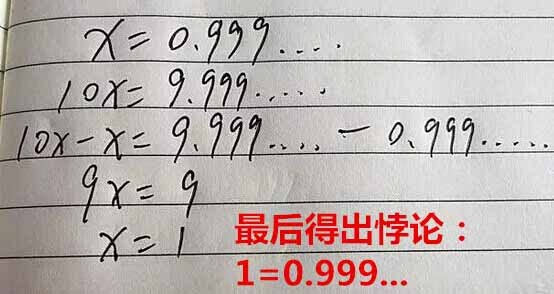 x = 0.999....
10x = 9.999.....
10x-x = 9.999.... - 0.999.....
9x = 9
x = 1
最后得出悖论：
1=0.999...